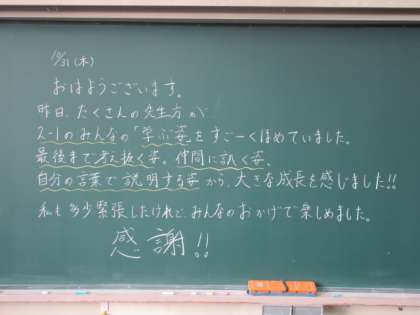 10/31(木)
おはようございます。
昨日、たくさんの先生方が、
2-1のみんなの「学ぶ姿」をすごーくほめていました。
最後まで考え抜く姿。仲間に訊く姿、
自分の言葉で説明する姿から、大きな成長を感じました!!
私も多少緊張したけれど、みんなのおかげで楽しめました。
感謝!!